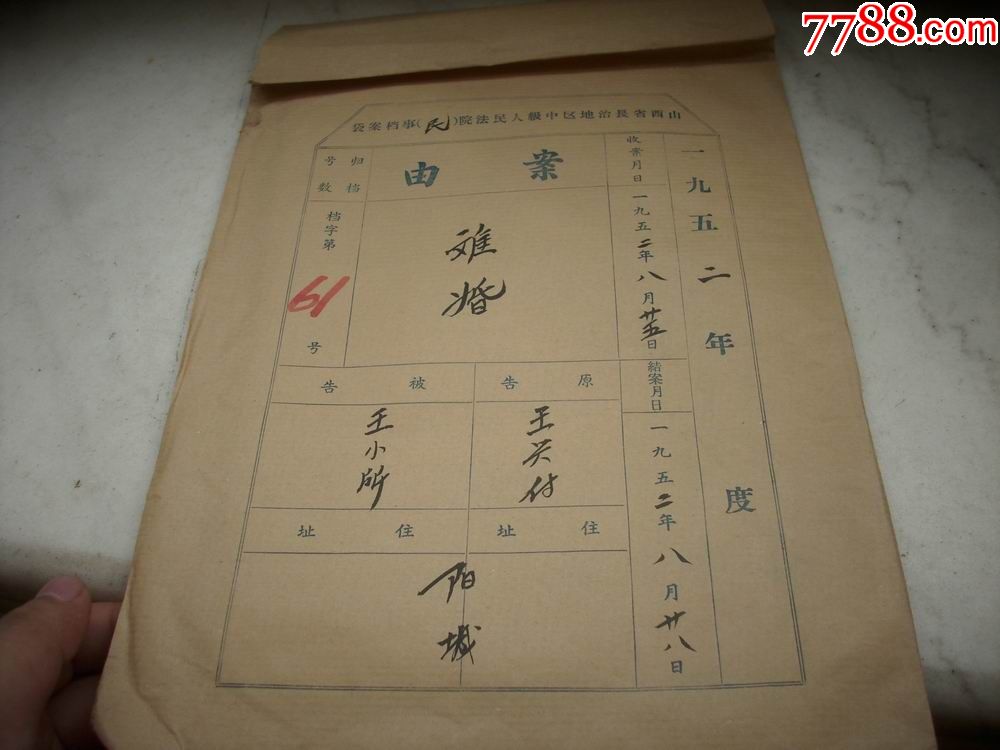 7788.com
山西省長治地区中級人民法院(民)事档案袋
一九五二年度
收案月日
一九五二年八月廿五日
結案月日
一九五二年八月廿八日
案由
难婚
归档号数
档字第
61
号
原告
王兴付
被告
王小所
住址
住址
阳城